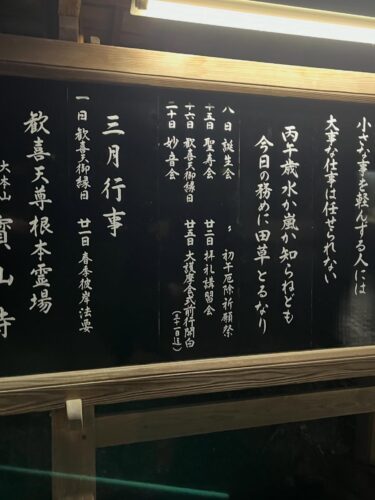 小さな事を軽んずる人には
大事な仕事は任せられない
丙午歳水か嵐か知らねども
今日の務めに田草とるなり
八日 誕生会
十五日 聖寿会
十六日 歓喜天御縁日
二十日 妙音会
〃 初午厄除祈願祭
廿三日 拝礼講習会
廿五日 大護摩会式前行開白
(三十一日迄)
三月行事
一日 歓喜天御縁日 廿一日 春季彼岸法要
歓喜天尊根本霊場
大本山 寳山寺